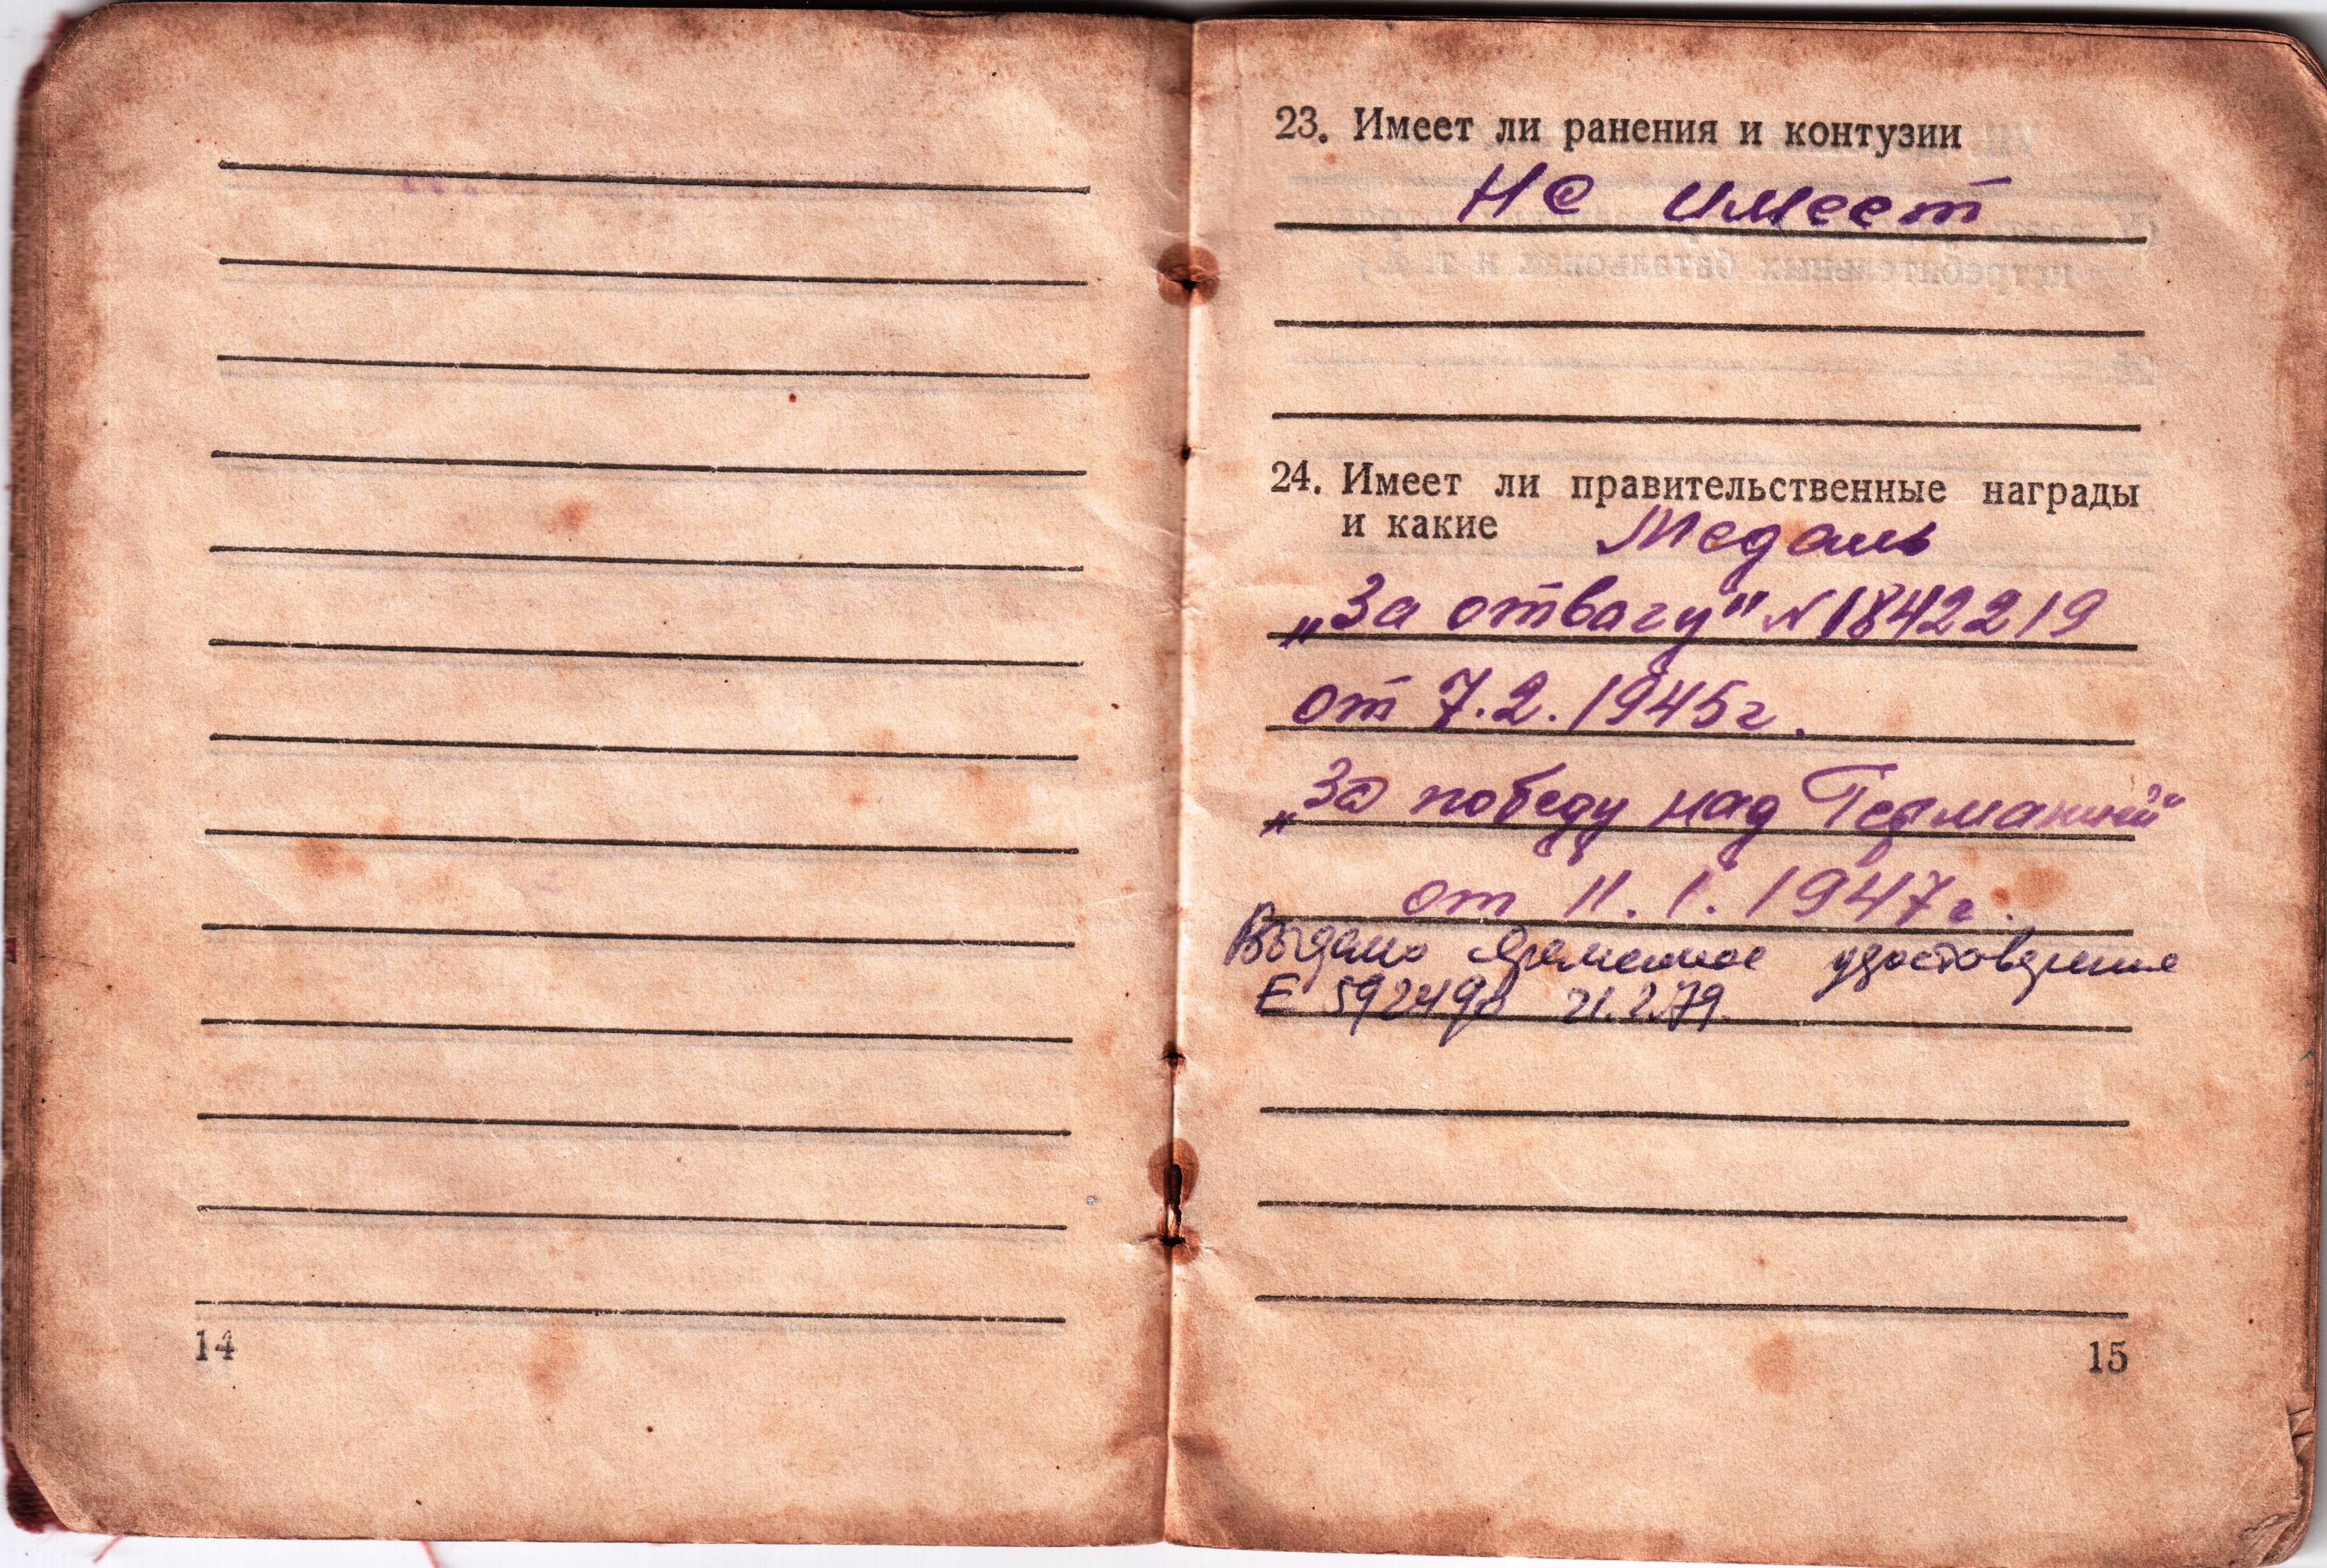 14
23. Имеет ли ранения и контузии
Не имеет
24. Имеет ли правительственные награды
и какие Медаль
„За отвагу" N 1842219
от 7.2.1945г.
„За победу над Германией"
от 11.1.1947г.
Выдано временное удостоверение
Е 21.2.79.
15